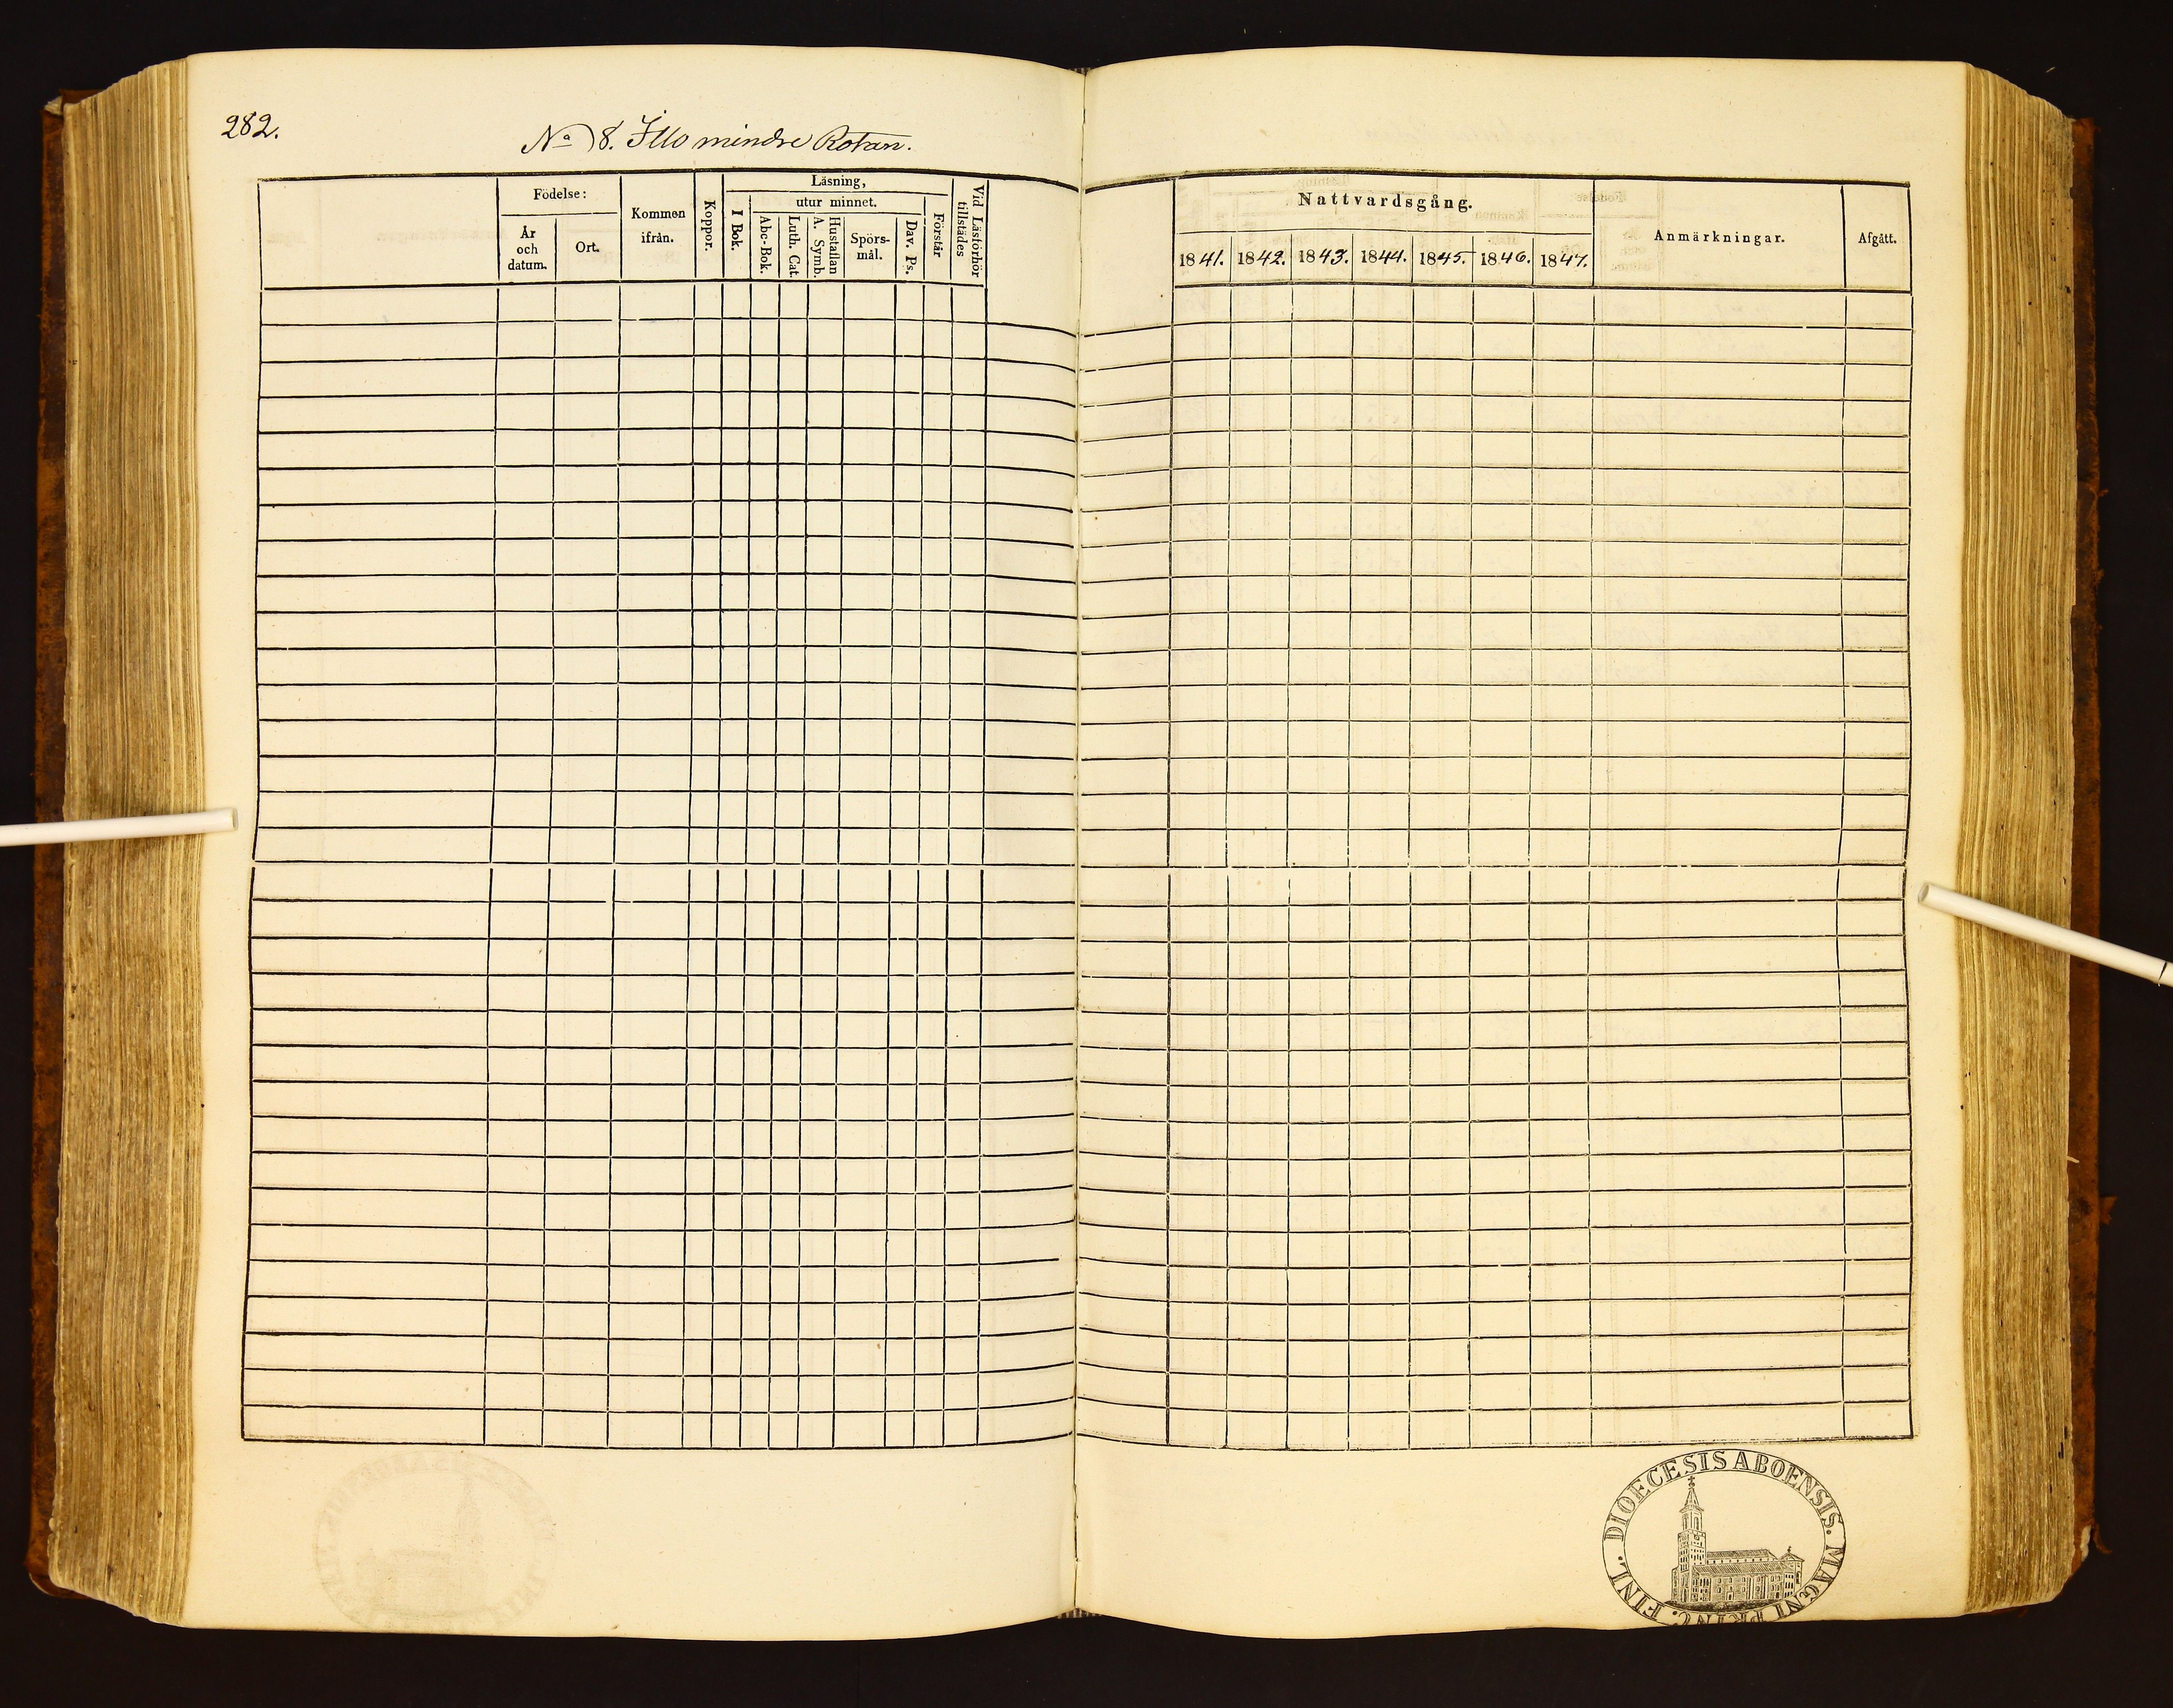 282.
No 8. Illo mindre Rotan.
Födelse:
År och datum.
Ort.
Kommen ifrån.
Koppor.
Läsning,
I Bok.
utur minnet.
Abc-Bok.
Luth. Cat.
Hustaflan
A. Symb.
Spörs-
mål.
Dav. Ps.
Förstår
Vid Läsförhör
tillstädes
Nattvardsgång.
1841. 1842. 1843. 1844. 1845. 1846. 1847.
Anmärkningar.
Afgått.
DIOECESIS ABOENSIS. MAGNI PRINC. FINL.